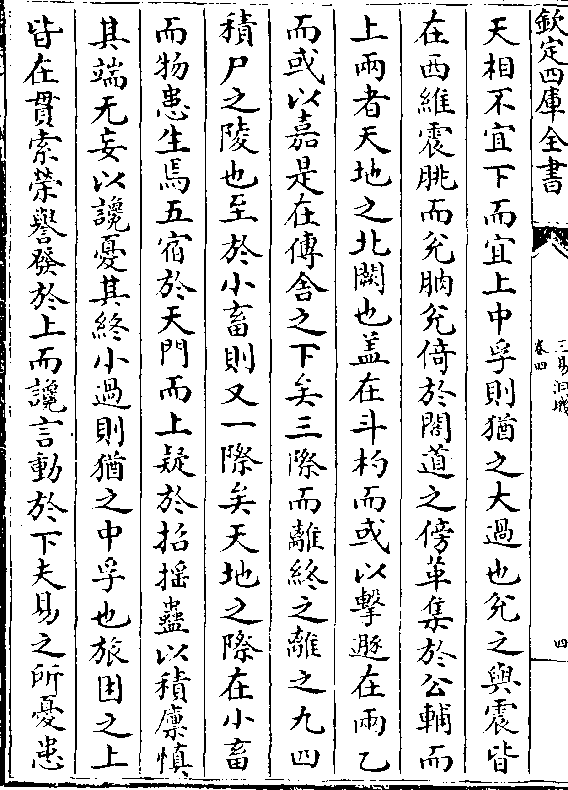 欽定四庫全書
三易洞璣
卷四
四
天相不宜下而宜上中孚則猶之大過也兊之與震皆
在西維震朓而兊朒兊倚於閣道之傍革集於公輔而
上兩者天地之北闕也盖在斗杓而或以擊遯在兩乙
而或以嘉是在傳舎之下矣三際而離終之離之九四
積尸之陵也至於小畜則又一際矣天地之際在小畜
而物患生焉五宿於天門而上疑於招揺蠱以積廪慎
其端无妄以讒憂其終小過則猶之中孚也旅困之上
皆在貫索榮譽發於上而讒言動於下夫易之所憂患